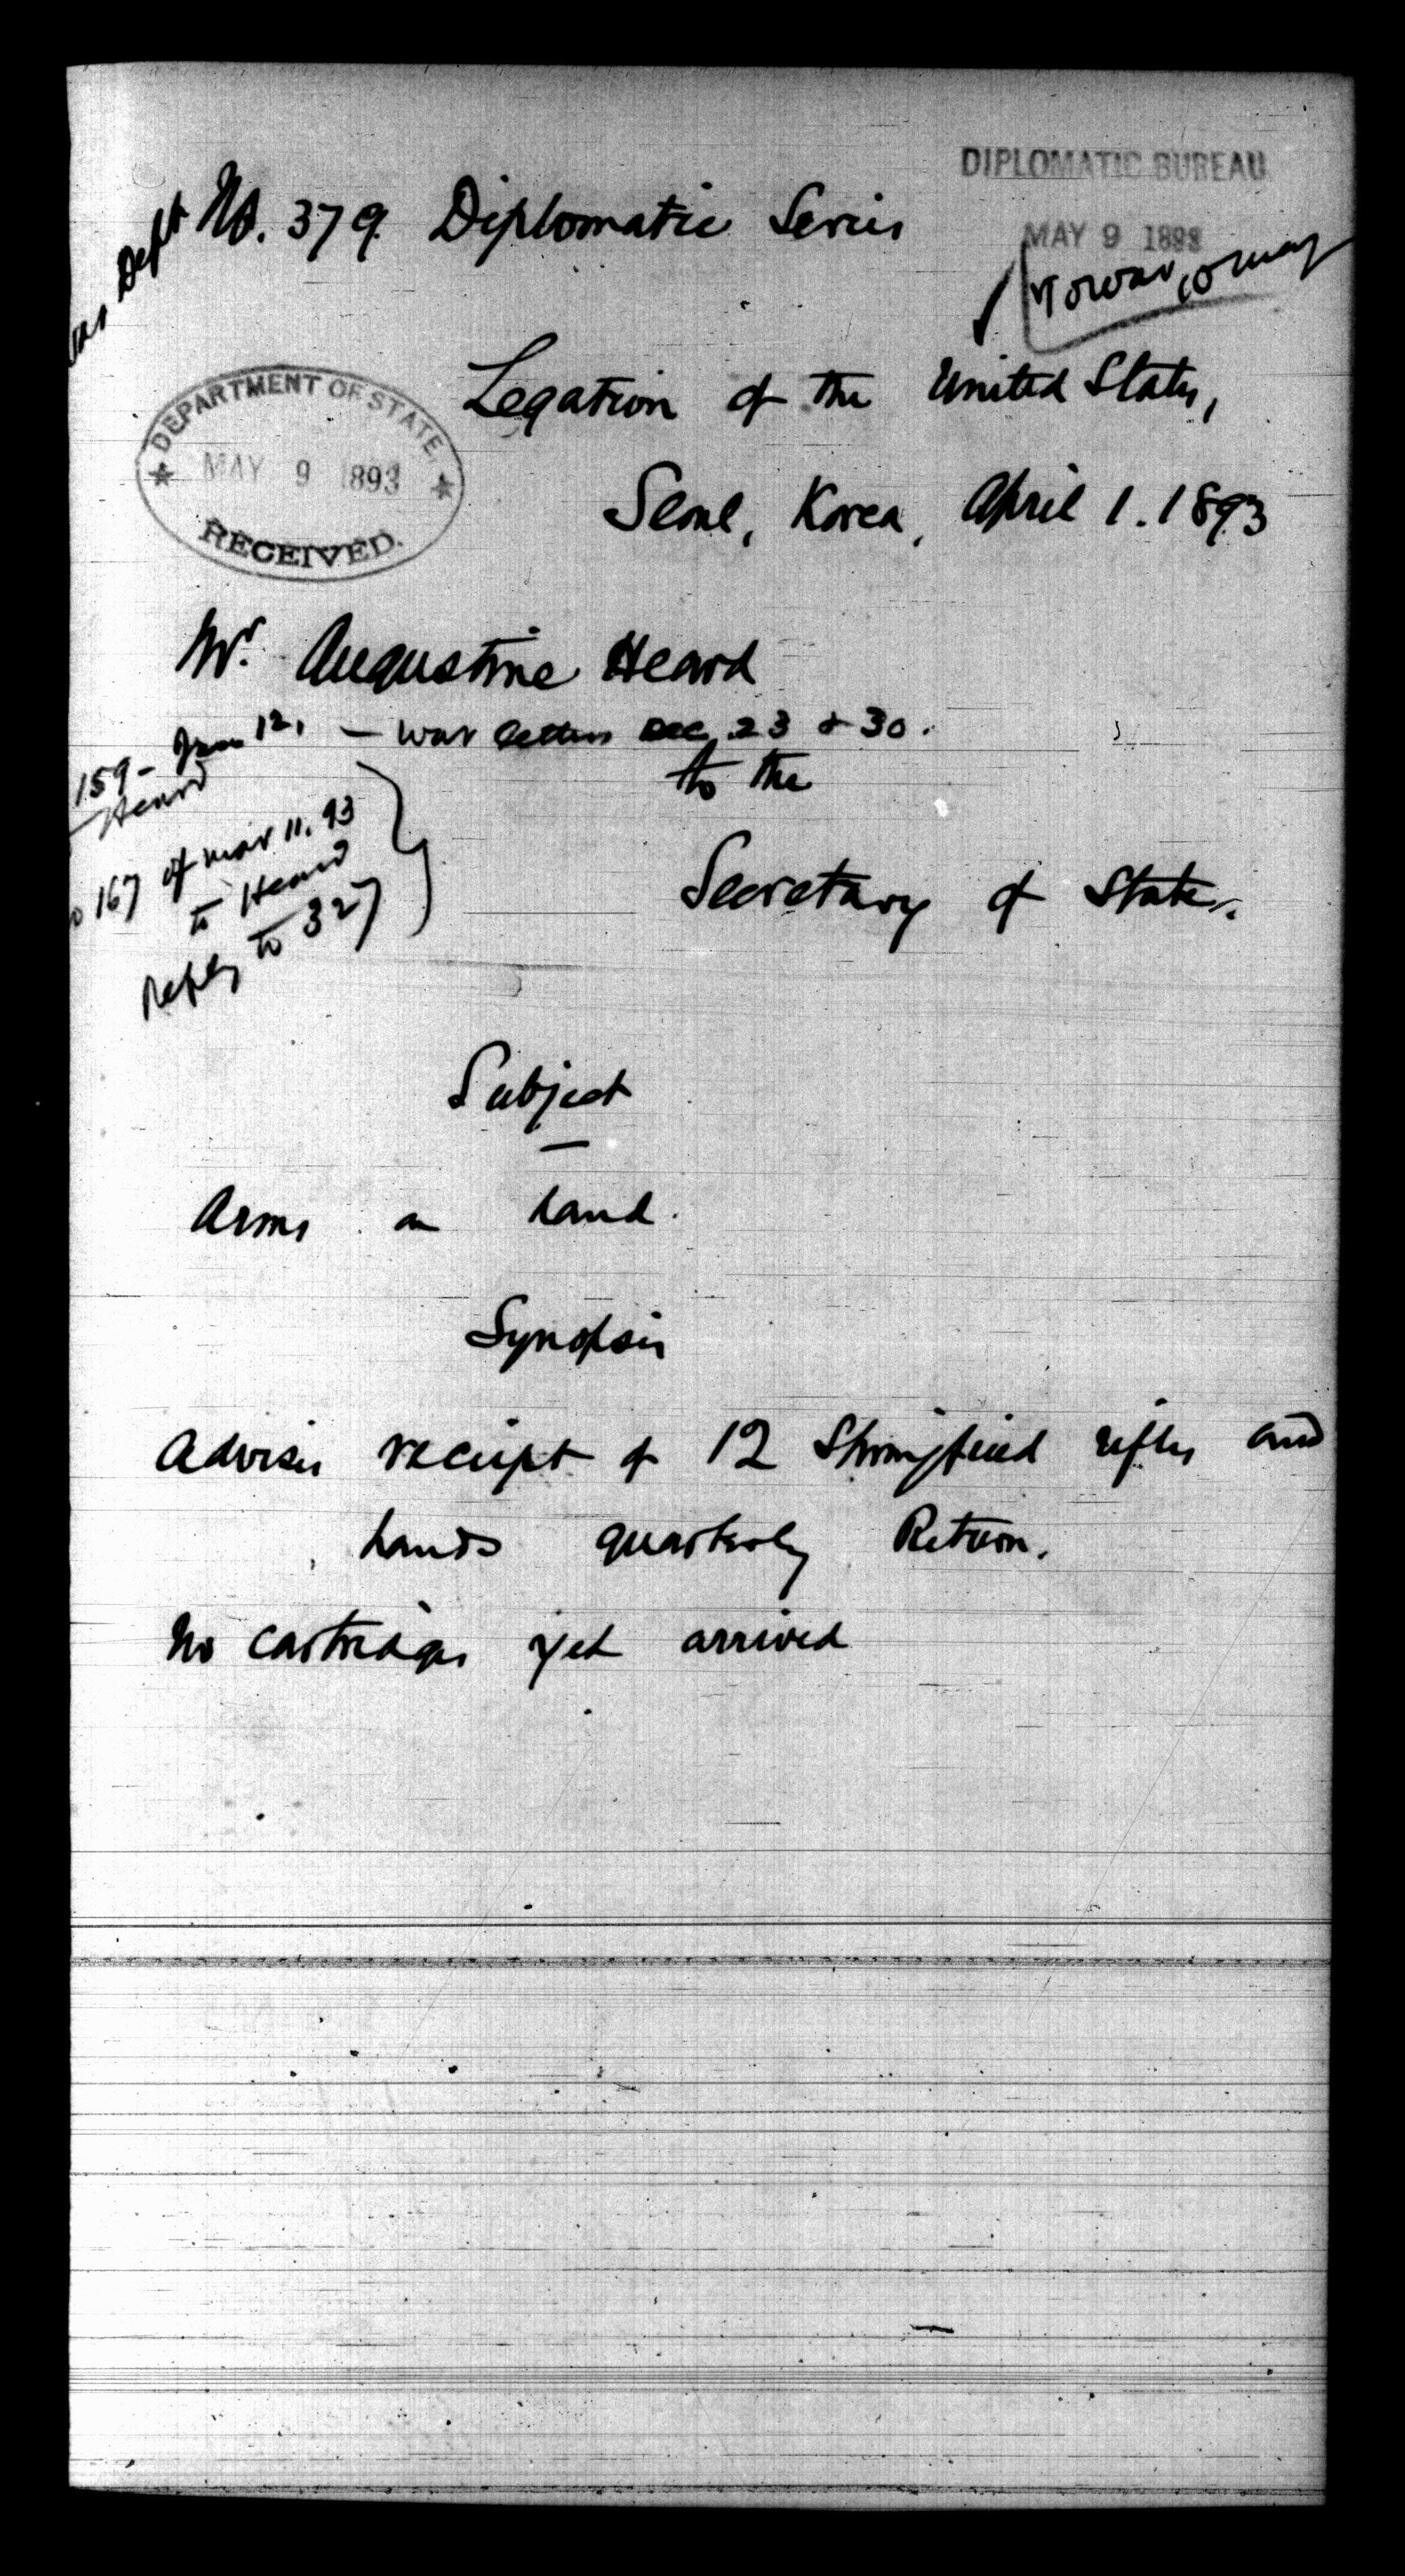 DIPLOMATIC BUREAU
MAY 9 1893
War Dept
No. 379. Diplomatic Series
To War, 10 May
Legation of the United States,
DEPARTMENT OF STATE
MAY 9 1893
RECEIVED.
Seoul, Korea, April 1. 1893
Mr. Augustine Heard
159 - Jan 12, - War letters Dec. 23 & 30.
Heard
to the
167 of Mar 11. 93
to Heard
Reply to 327
Secretary of State.
Subject
Arms on hand.
Synopsis
Advises receipt of 12 Springfield rifles and
hands quarterly Return.
No cartridges yet arrived